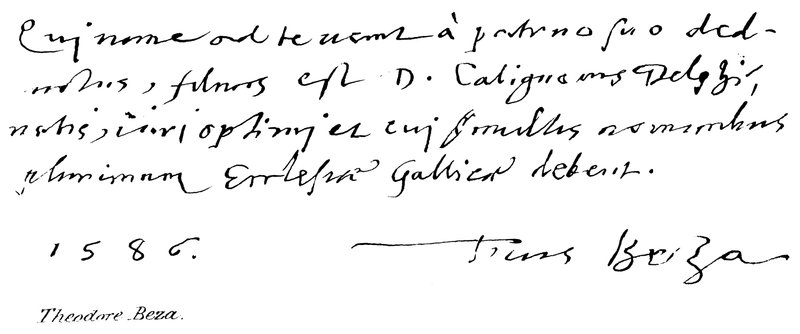 Qui nunc ad te venit à patruo suo ded-
notus, filius est D. Calignonis Delphi,
natis, viri optimi et cui multis nominibus
plurimum Ecclesiæ Gallicæ debent.
1586.
Tuus Beza
Theodore Beza.